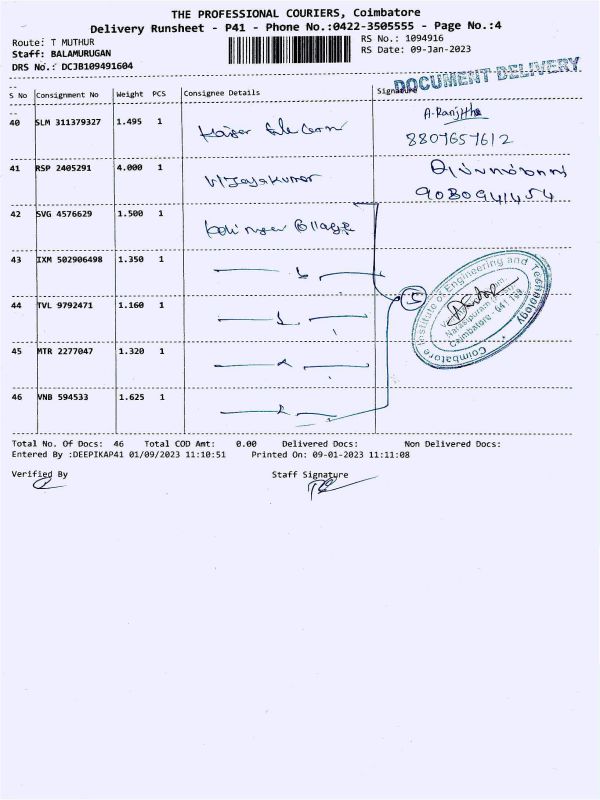 THE PROFESSIONAL COURIERS, Coimbatore
Delivery Runsheet - P41 - Phone No.:0422-3505555 - Page No.:4
Route: T MUTHUR
RS No.: 1094916
Staff: BALAMURUGAN
RS Date: 09-Jan-2023
DRS No.: DCJB109491604
DOCUMENT DELIVERY
S No Consignment No Weight PCS Consignee Details Signature
40 SLM 311379327 1.495 1
A. Ranjitha
8807657612
41 RSP 2405291 4.000 1 Vijayakumar
9080941454
42 SVG 4576629 1.500 1
43 IXM 502906498 1.350 1
44 TVL 9792471 1.160 1
45 MTR 2277047 1.320 1
46 VNB 594533 1.625 1
5
Coimbatore Institute of Engineering and Technology
Coimbatore - 641 109
Total No. Of Docs: 46 Total COD Amt: 0.00 Delivered Docs: Non Delivered Docs:
Entered By :DEEPIKAP41 01/09/2023 11:10:51 Printed On: 09-01-2023 11:11:08
Verified By Staff Signature